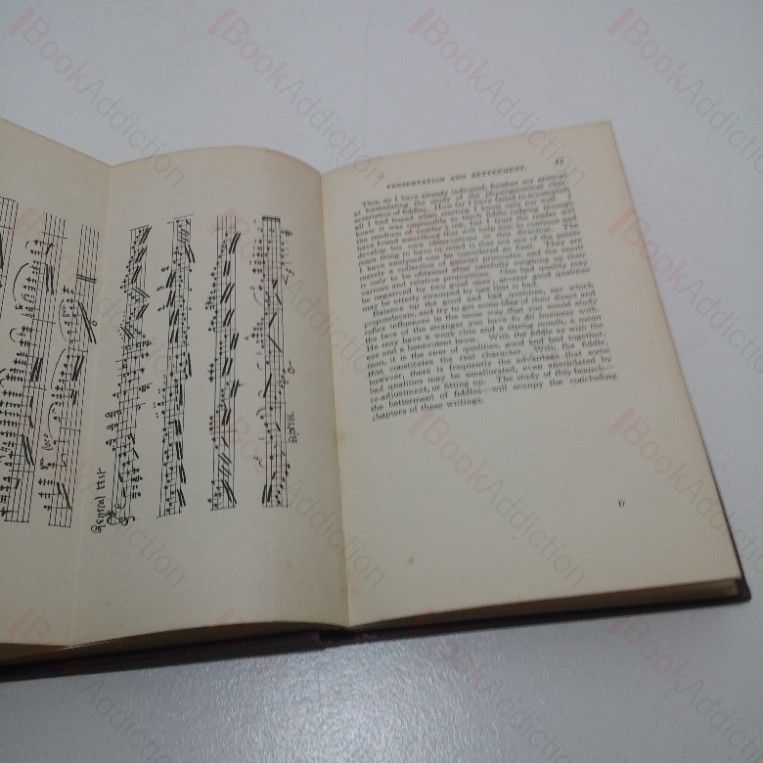 General test
loco
PRESENTATION AND BETTERMENT.
This, as I have already indicated, finishes my attempt
at formulating the study of the physiognomical char-
acteristics of fiddles. How far I have failed to accomplish
all I had hoped when starting I know only too well. I
knew it was impossible to teach fiddle judging through
the medium of printer's ink, but I trust the reader will
have found something that will help him to consciously
develop his own observations in this direction. The
one thing to have in mind is that not one of the points
I have analysed can be considered alone. They are
merely a collection of general principles, and the result
is only to be obtained after a summing up of their
various and relative proportions. One bad quality may
be negatived by two good ones; several good qualities
may be utterly swamped by one that is bad.
Balance up the good and bad qualities, see which
preponderate, and try to get some idea of their direct and
relative influences in the same way that you would study
the face of the stranger you have to do business with.
He may have a weak chin and a strong mouth, a mean
eye and a benevolent brow. With the fiddle as with the
man, it is the sum of qualities, good and bad together,
that constitutes the real character. With the fiddle,
however, there is frequently the advantage that some
bad qualities may be ameliorated, even annulated by
re-adjustment, or fitting up. The study of this branch—
the betterment of fiddles—will occupy the concluding
chapters of these writings.